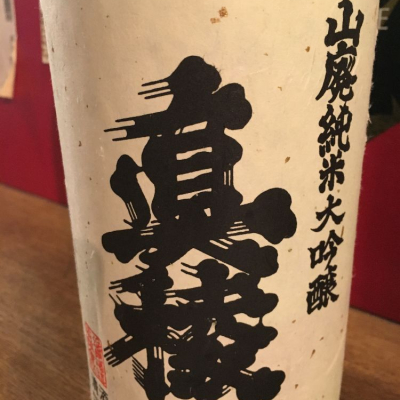 山廃純米大吟醸
真稜